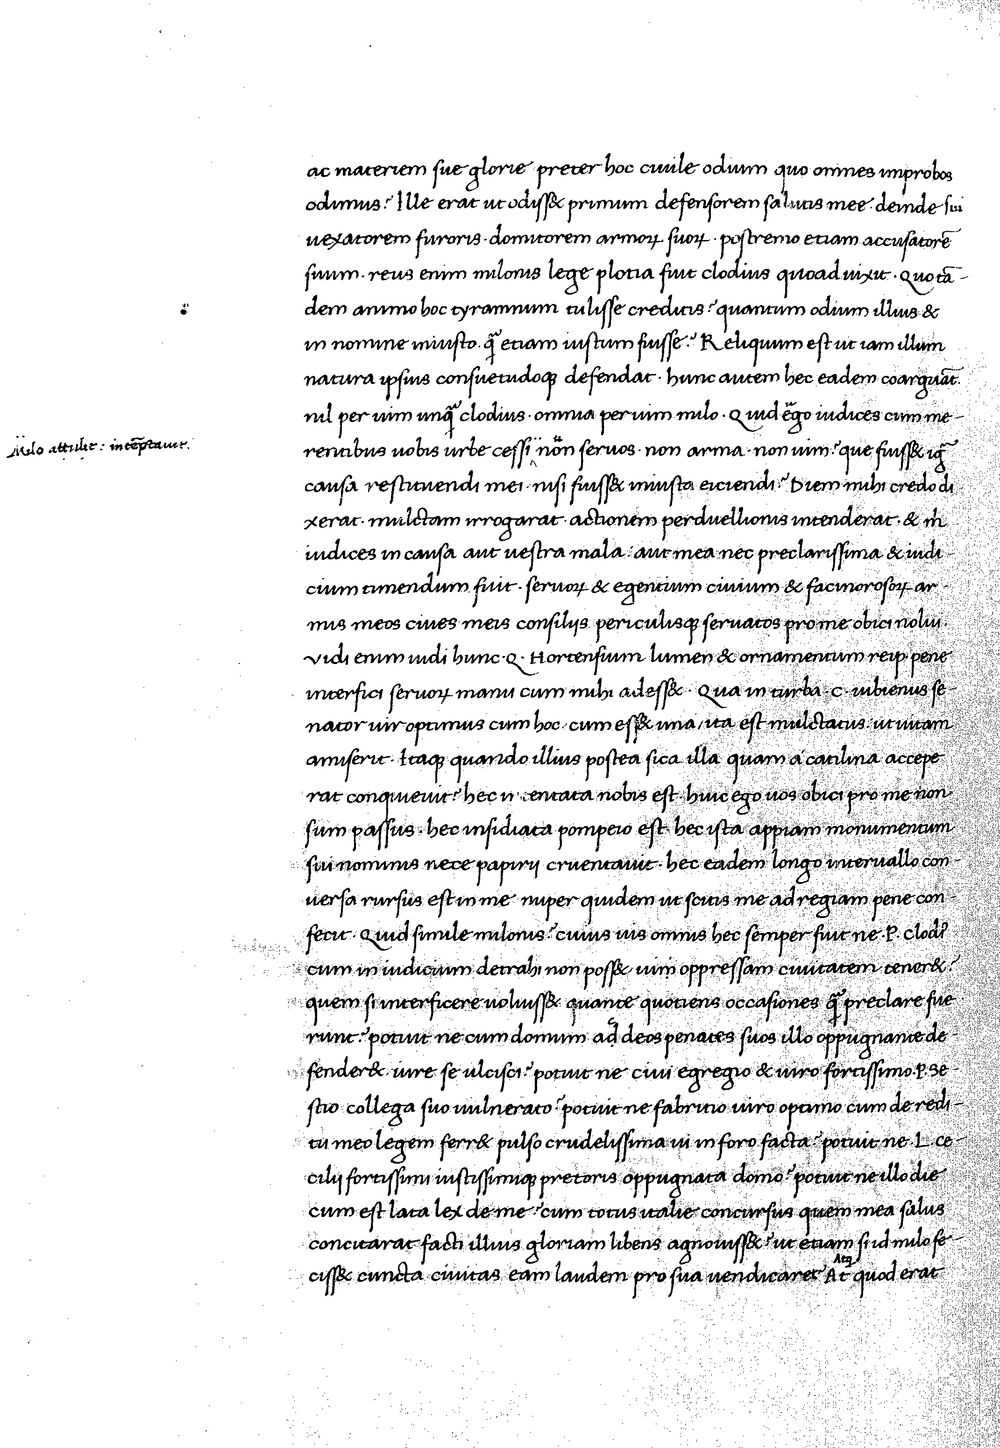 ac materiem sue glorie preter hoc ciuile odium quo omnes improbos
odimus? Ille erat ut odiss& primum defensorem salutis mee. deinde sui
uexatorem furoris. domitorem armoꝝ suoꝝ. postremo etiam accusatorē
suum. reus enim milonis lege plotia fuit clodius quoad uixit. Quo tā-
dem animo hoc tyrannum tulisse creditis? quantum odium illius &
in homine iniusto. q̄ etiam iustum fuisse? Reliquum est ut iam illum
natura ipsius consuetudoqꝫ defendat. hunc autem hec eadem coarguāt.
nil per uim unq̄ clodius. omnia per uim milo. Quid ego iudices cum me-
Milo attulit: inteptauit.
rentibus uobis urbe cessi nōn seruos. non arma. non uim? que fuiss& igͥ
causa restituendi mei. nisi fuiss& iniusta eiciendi? Diem mihi credo di
xerat. mulctam irrogarat. actionem perduellionis intenderat. & m̄
iudices in causa aut uestra mala. aut mea nec preclarissima & iudi-
cium timendum fuit. seruoꝝ & egentium ciuium & facinorosoꝝ ar-
mis meos ciues meis consilijs periculisqꝫ seruatos pro me obici nolui.
Vidi enim uidi hunc. Q. Hortensium lumen & ornamentum reip pene
interfici seruoꝝ manu cum mihi adess&. Qua in turba. C. uibienus se-
nator uir optimus cum hoc. cum ess& una, ita est mulctatus. ut uitam
amiserit. Itaqꝫ quando illius postea sica illa quam a catilina accepe
rat conquieuit? hec entata nobis est. huic ego uos obici pro me non
sum passus. hec insidiata pompeio est. hec ista appiam monumentum
sui nominis nece papirij cruentauit. hec eadem longo interuallo con-
uersa rursus est in me nuper quidem ut scitis me ad regiam pene con-
fecit. Quid simile milonis? cuius uis omnis hec semper fuit ne. P. Clodi
cum in iudicium detrahi non poss&. uim oppressam ciuitatem tener&?
quem si interficere uoluiss& quante quotiens occasiones q̄ preclare fue
runt? potuit ne cum domum ad deos penates suos illo oppugnante de-
fender&. iure se ulcisci? potuit ne ciui egregio & uiro fortissimo. P. Se-
stio collega suo uulnerato? potuit ne fabritio uiro optimo cum de redi-
tu meo legem ferr& pulso crudelissima ui in foro facta? potuit ne. L. ce-
cilij fortissimi iustissimiqꝫ pretoris oppugnata domo? potuit ne illo die
cum est lata lex de me? cum totus italie concursus quem mea salus
concitarat facti illius gloriam libens agnouiss&? ut etiam si id milo fe-
Atqꝫ
ciss& cuncta ciuitas eam laudem pro sua uendicaret At quod erat